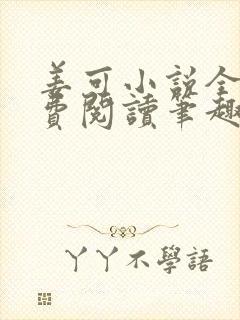 姜可小說全
費閱讀筆趣
丫丫不學語